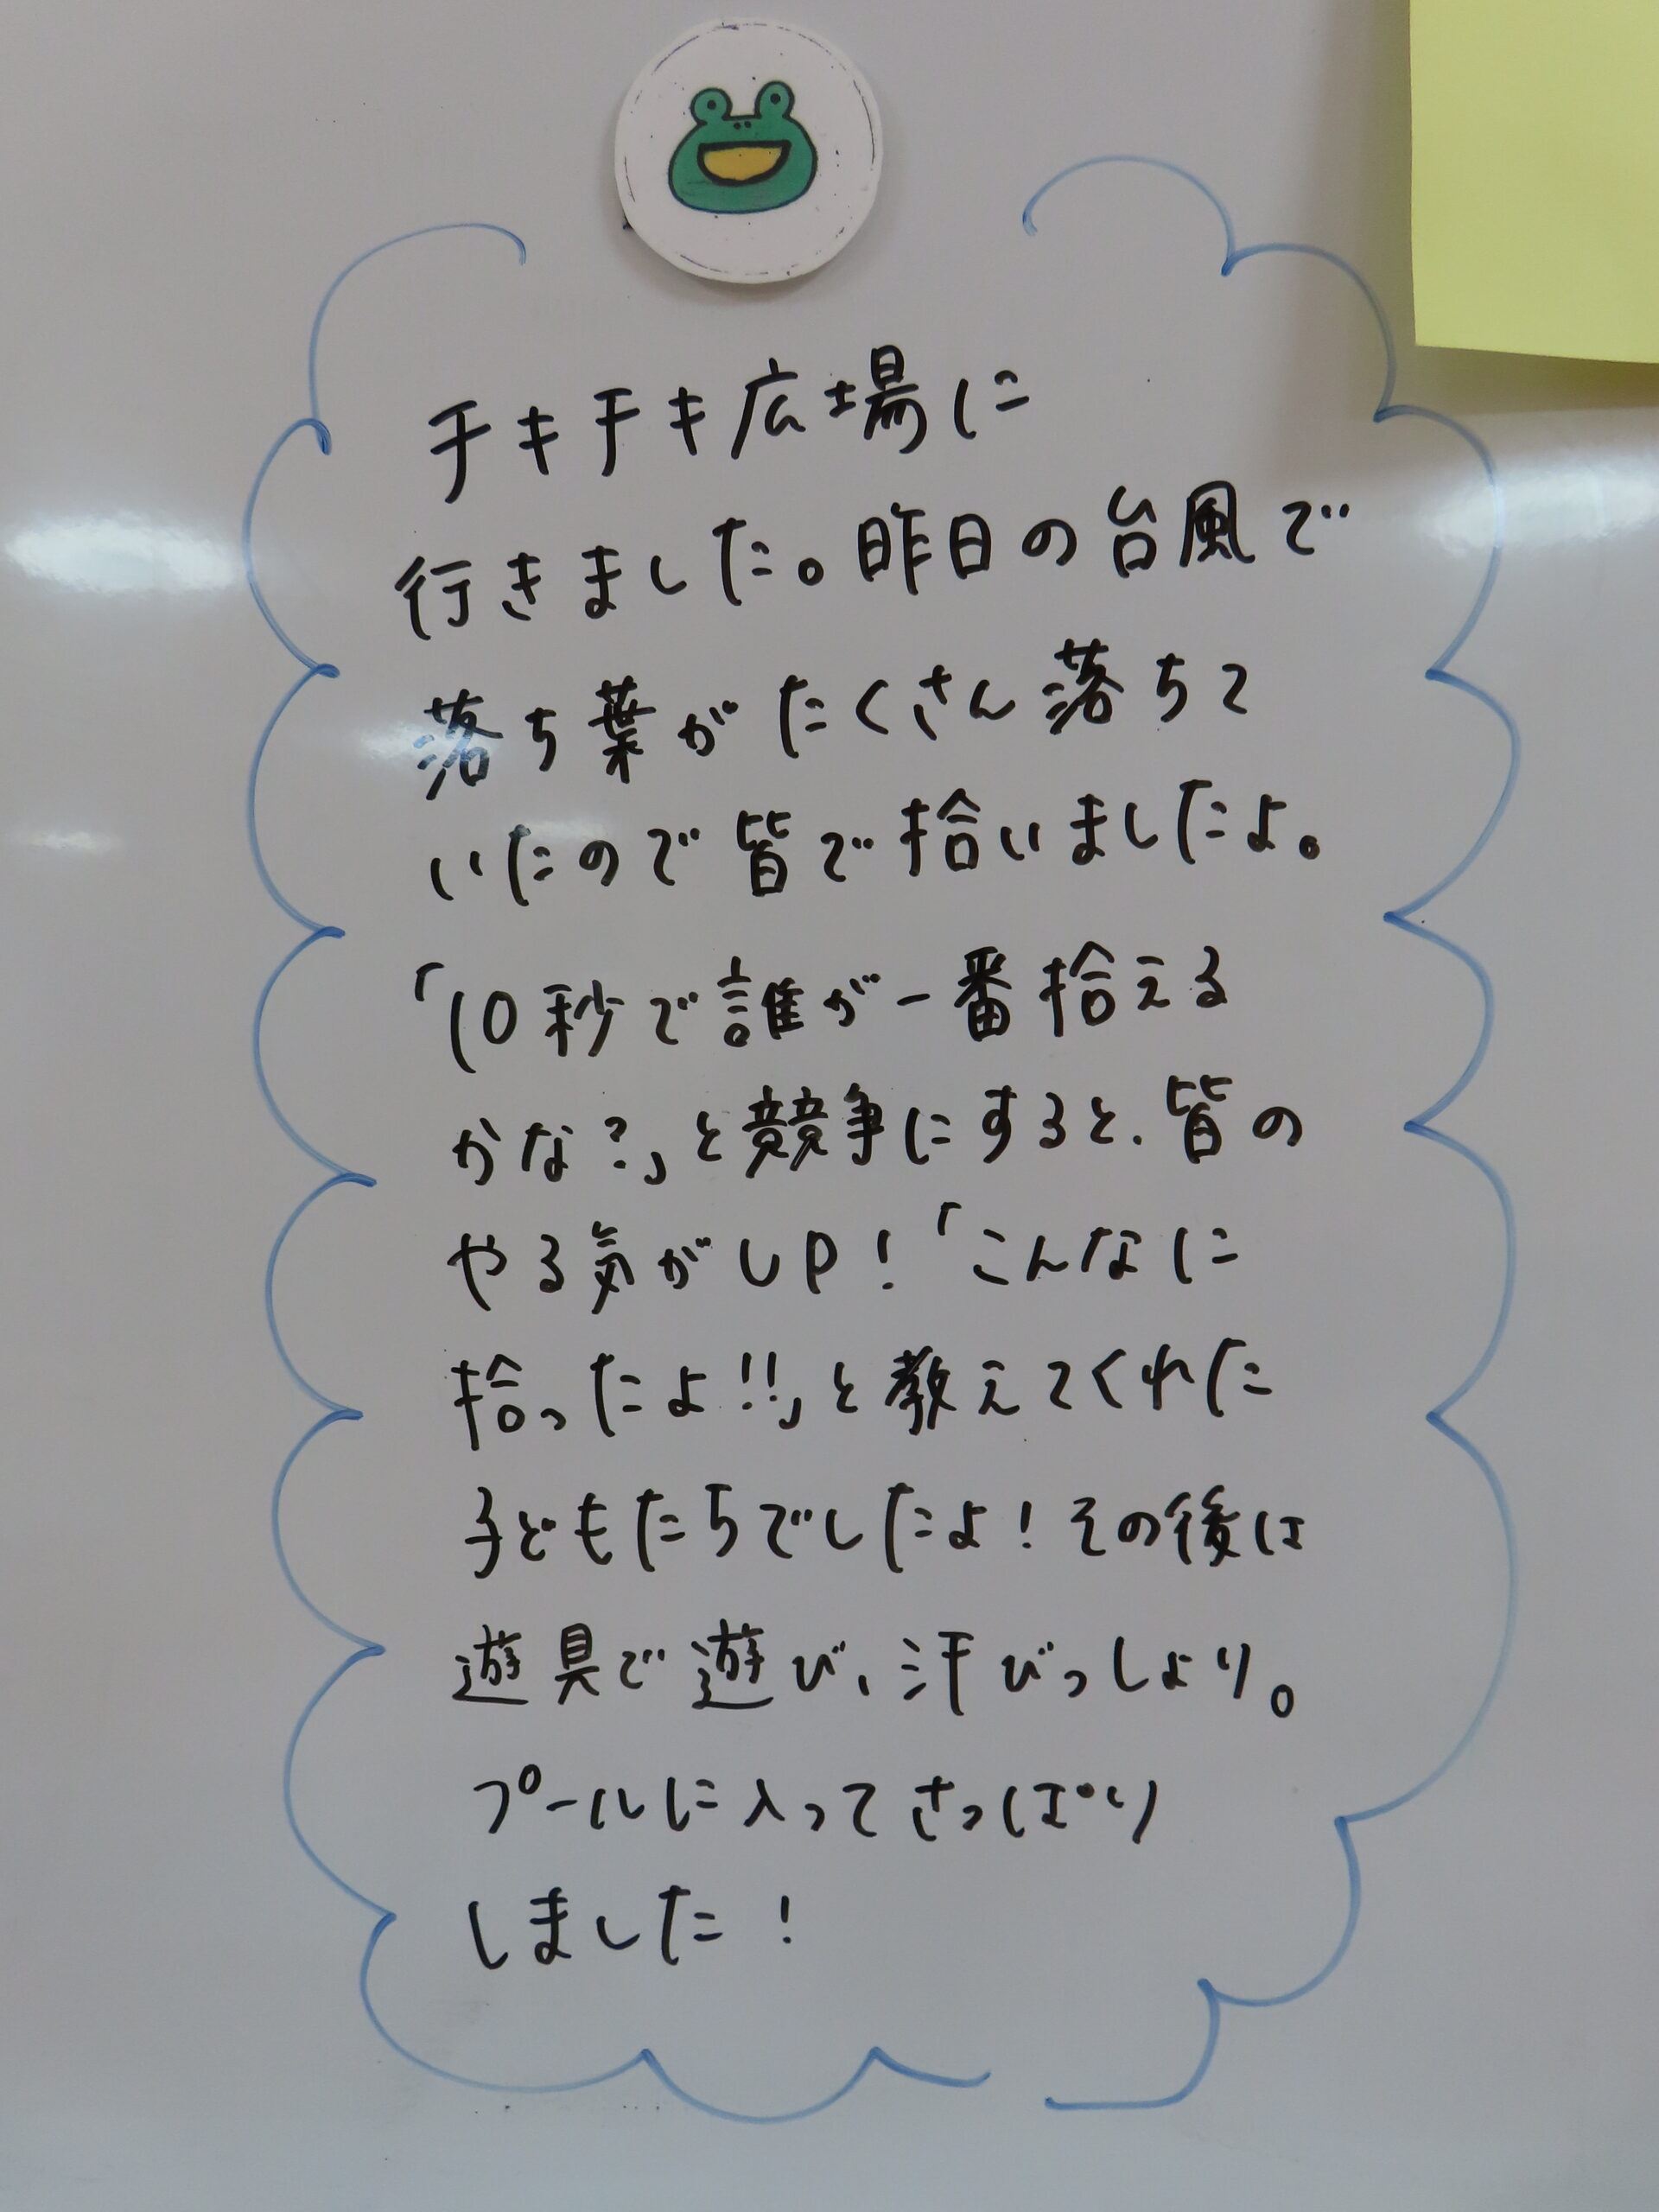 チキチキ広場に
行きました。昨日の台風で
落ち葉がたくさん落ちて
いたので皆で拾いましたよ。
「10秒で誰が一番拾える
かな?」と競争にすると、皆の
やる気がUP!「こんなに
拾ったよ!!」と教えてくれた
子どもたちでしたよ!その後は
遊具で遊び、汗びっしより。
プールに入ってさっぱり
しました!